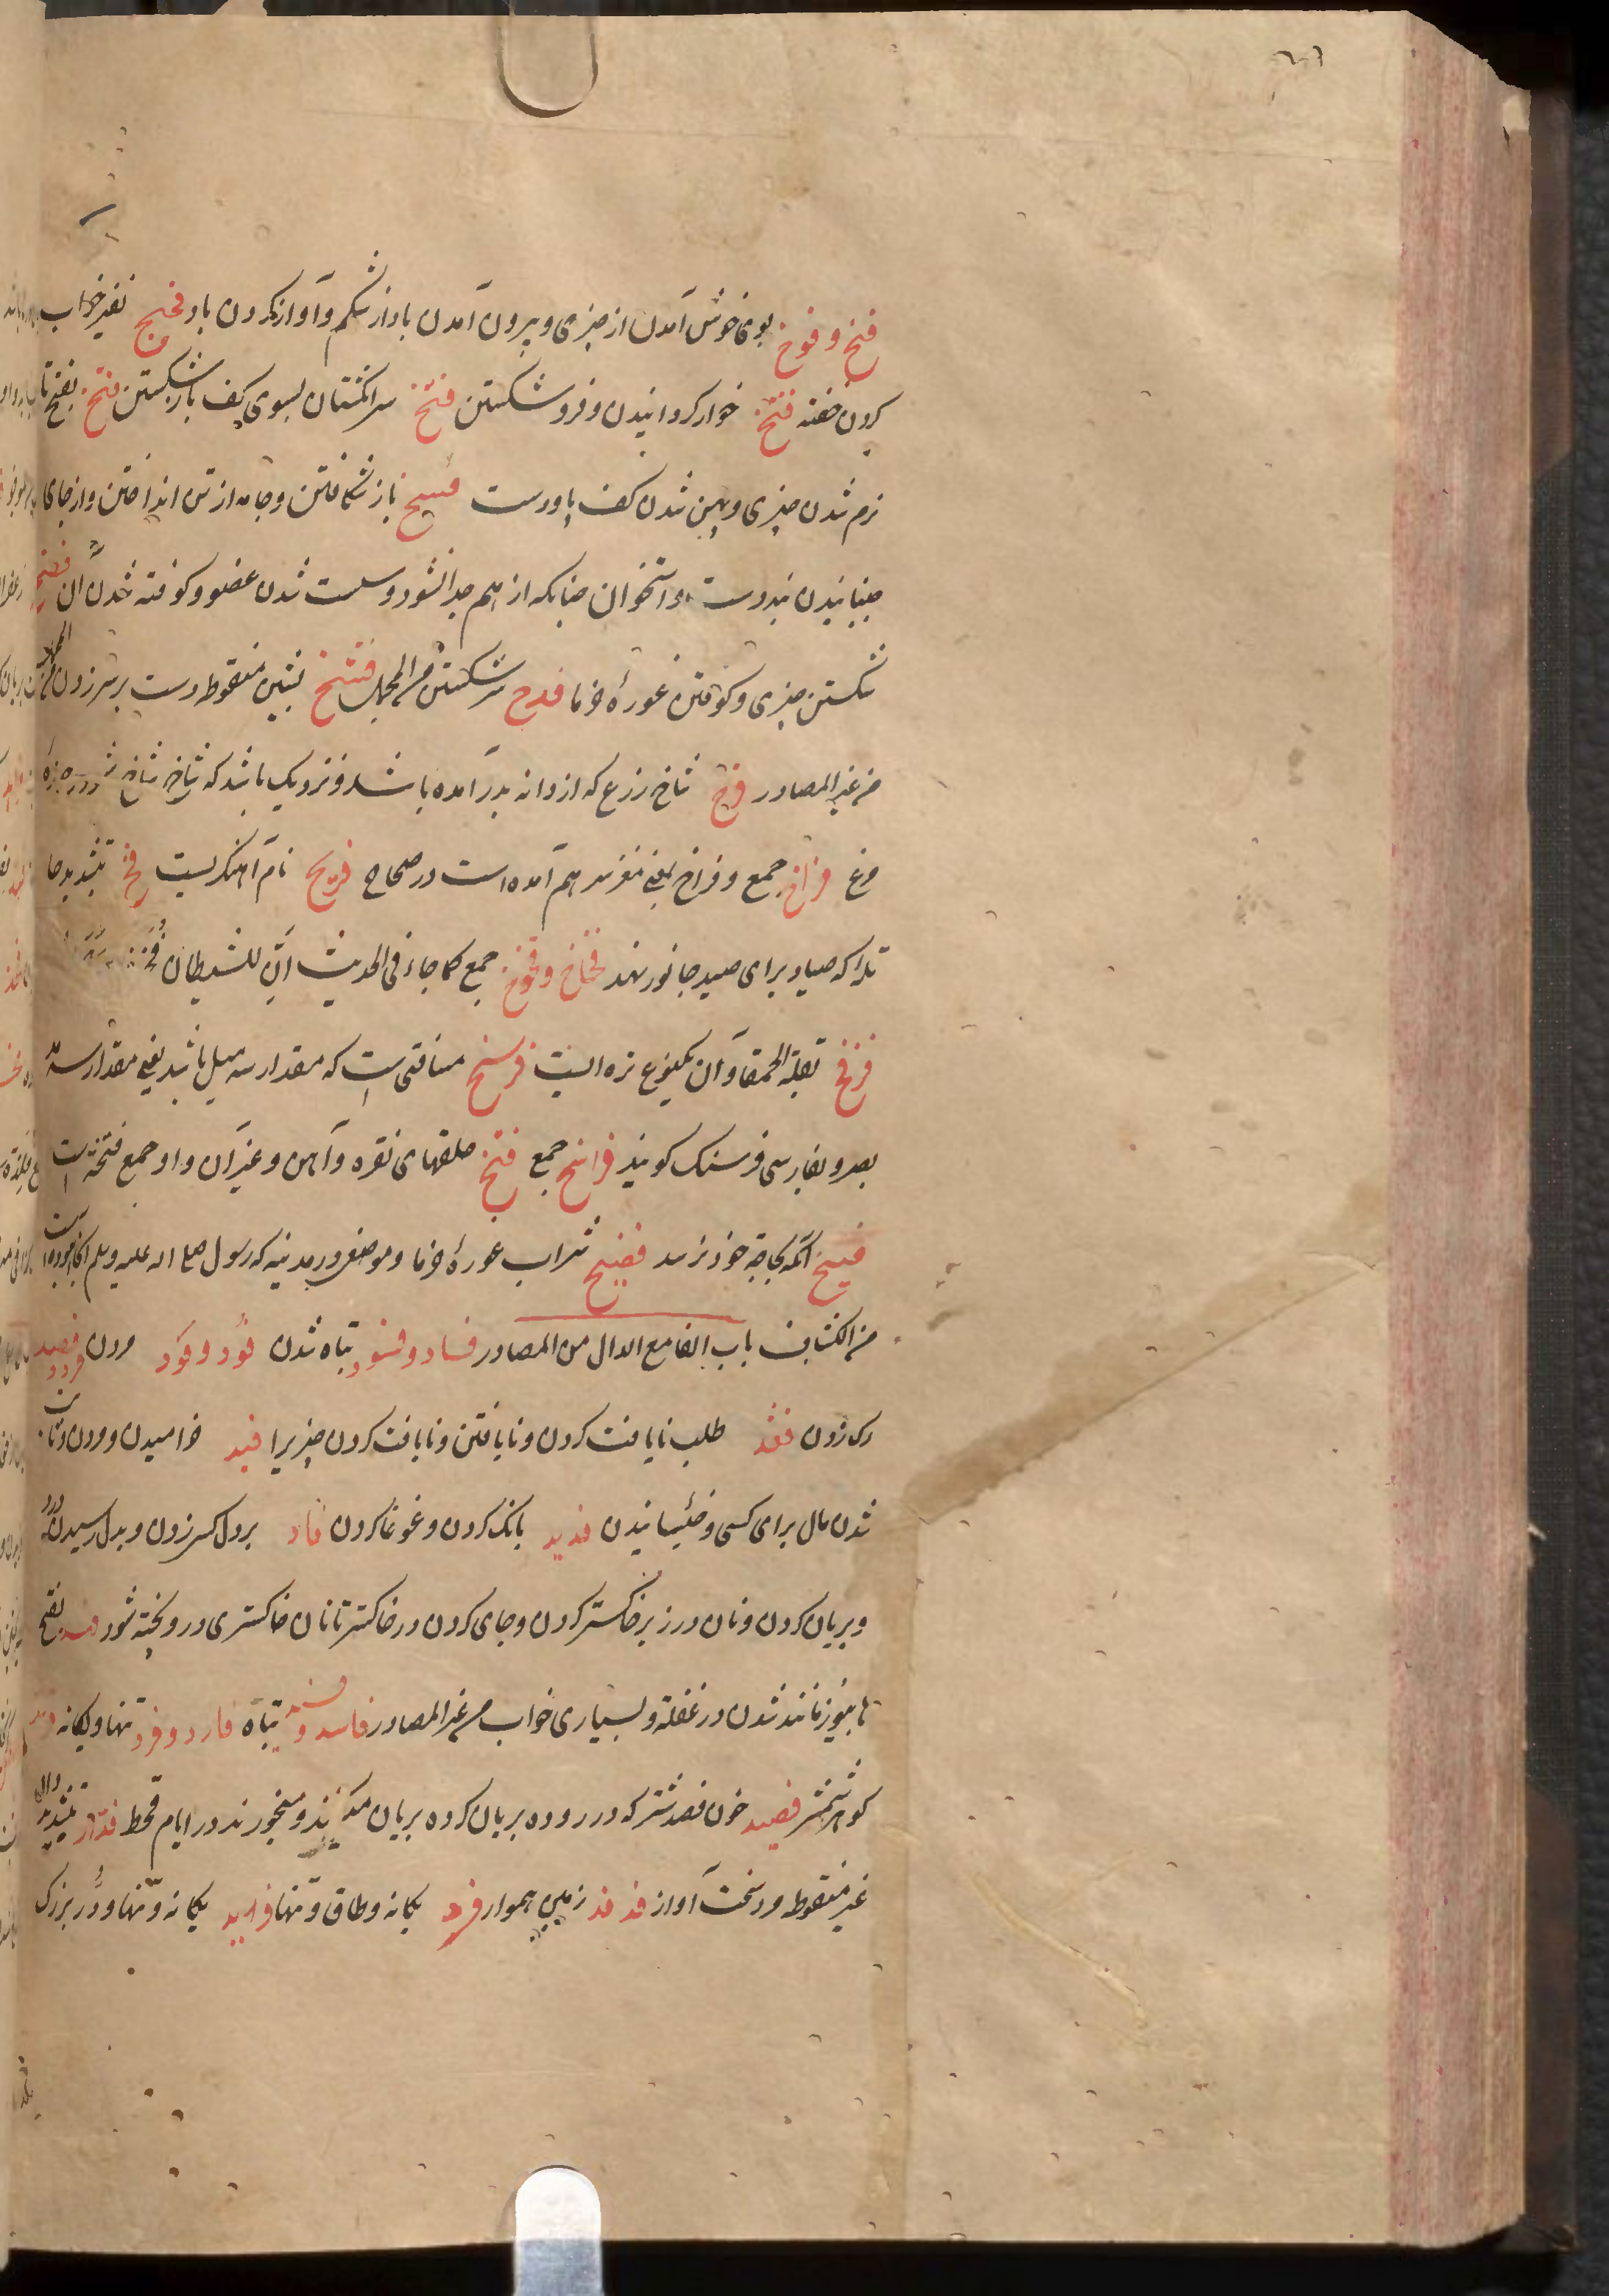 فیخ و فوخ بوی خوش آمدن از چیزی و بیرون آمدن باد از شکم و آواز کردن باد فخیخ نفیر خواب
کردن خفته فنخ خوار گردانیدن و فرو شکستن فتخ سر انگشتان بسوی کف باز شکستن فتخ بفتح تا
نرم شدن چیزی و پهن شدن کف پا و دست فسخ باز شکافتن و جامه از تن انداختن و از جای
جنبانیدن بند دست و استخوان چنانکه از هم جدا نشود و سست شدن عضو و کوفته شدن آن فضخ
شکستن چیزی و کوفتن غورهٔ خرما فدخ سر شکستن من المجمل فشخ بشین منقوطه دست بر سر زدن
من غیر المصادر فرخ شاخ زرع که از دانه بدر آمده باشد و نزدیک باشد که شاخ شاخ شود
مرغ فراخ جمع و فراخ بمعنی مغز سر هم آمده است در صحاح فریخ نام آهنگریست فخ بتشدید خا
تله که صیاد برای صید جانور نهد فخاخ و فخوخ جمع کما جاء فی الحدیث ان للشیطان
فرفخ بقلة الحمقا و آن یکنوع تره ایست فرسخ مسافتی است که مقدار سه میل باشد یعنی مقدار سه
بصر و بفارسی فرسنگ گویند فراسخ جمع فتخ حلقهای نقره و آهن و غیر آن و او جمع فتخه است
فسیخ آنکه بحاجة خود نرسد فضیخ شراب غورهٔ خرما و موضعی در مدینه که رسول صلی الله علیه و سلم آنجا بوده است
من الکشاف باب الفا مع الدال من المصادر فساد و فسود تباه شدن فود و فود مردن فصد
رک زدن فقد طلب نایافت کردن و نایافتن و نایافت کردن چیزیرا فید خرامیدن و مردن و ثابت
شدن مال برای کسی و خیسانیدن فدید بانک کردن و غوغا کردن فاد بر دل کسی زدن و بدل رسیدن درد
و بریان کردن و نان در زیر خاکستر کردن و جای کردن در خاکستر تا نان خاکستری درو پخته شود فهد بفتح
ها یوز مانند شدن در غفلة و بسیاری خواب من غیر المصادر فاسد و فسید تباه فارد و فرد تنها و یکانه فرند
گوهر شمشیر فصید خون فصد شتر که در روده بریان کرده بریان میکنند و میخورند در ایام قحط فداد بتشدید دال
غیر منقوطه مرد سخت آواز فدفد زمین هموار فرد یکانه و طاق و تنها فرید یکانه و تنها و دُر بزرک